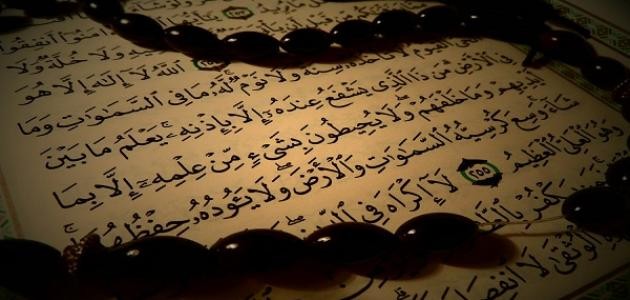 ءَامَنُوٓا۟ أَنفِقُوا۟
وَلَا خُلَّةٌ وَلَا
ٱللَّهُ لَآ إِلَٰهَ إِلَّا هُوَ
ٱلْقَيُّومُ لَا تَأْخُذُهُۥ سِنَةٌ وَلَا نَوْمٌ لَّهُۥ مَا فِى ٱلسَّمَٰوَٰتِ وَمَا
فِى ٱلْأَرْضِ مَن ذَا ٱلَّذِى يَشْفَعُ عِندَهُۥٓ إِلَّا بِإِذْنِهِۦ يَعْلَمُ مَا بَيْنَ
أَيْدِيهِمْ وَمَا خَلْفَهُمْ وَلَا يُحِيطُونَ بِشَىْءٍ مِّنْ عِلْمِهِۦٓ إِلَّا بِمَا
شَآءَ وَسِعَ كُرْسِيُّهُ ٱلسَّمَٰوَٰتِ وَٱلْأَرْضَ وَلَا يَـُٔودُهُۥ حِفْظُهُمَا
وَهُوَ ٱلْعَلِىُّ ٱلْعَظِيمُ ٢٥٥ لَآ إِكْرَاهَ فِى
يَكْفُرْ
ٱلْوُثْقَىٰ لَا ٱنفِصَامَ